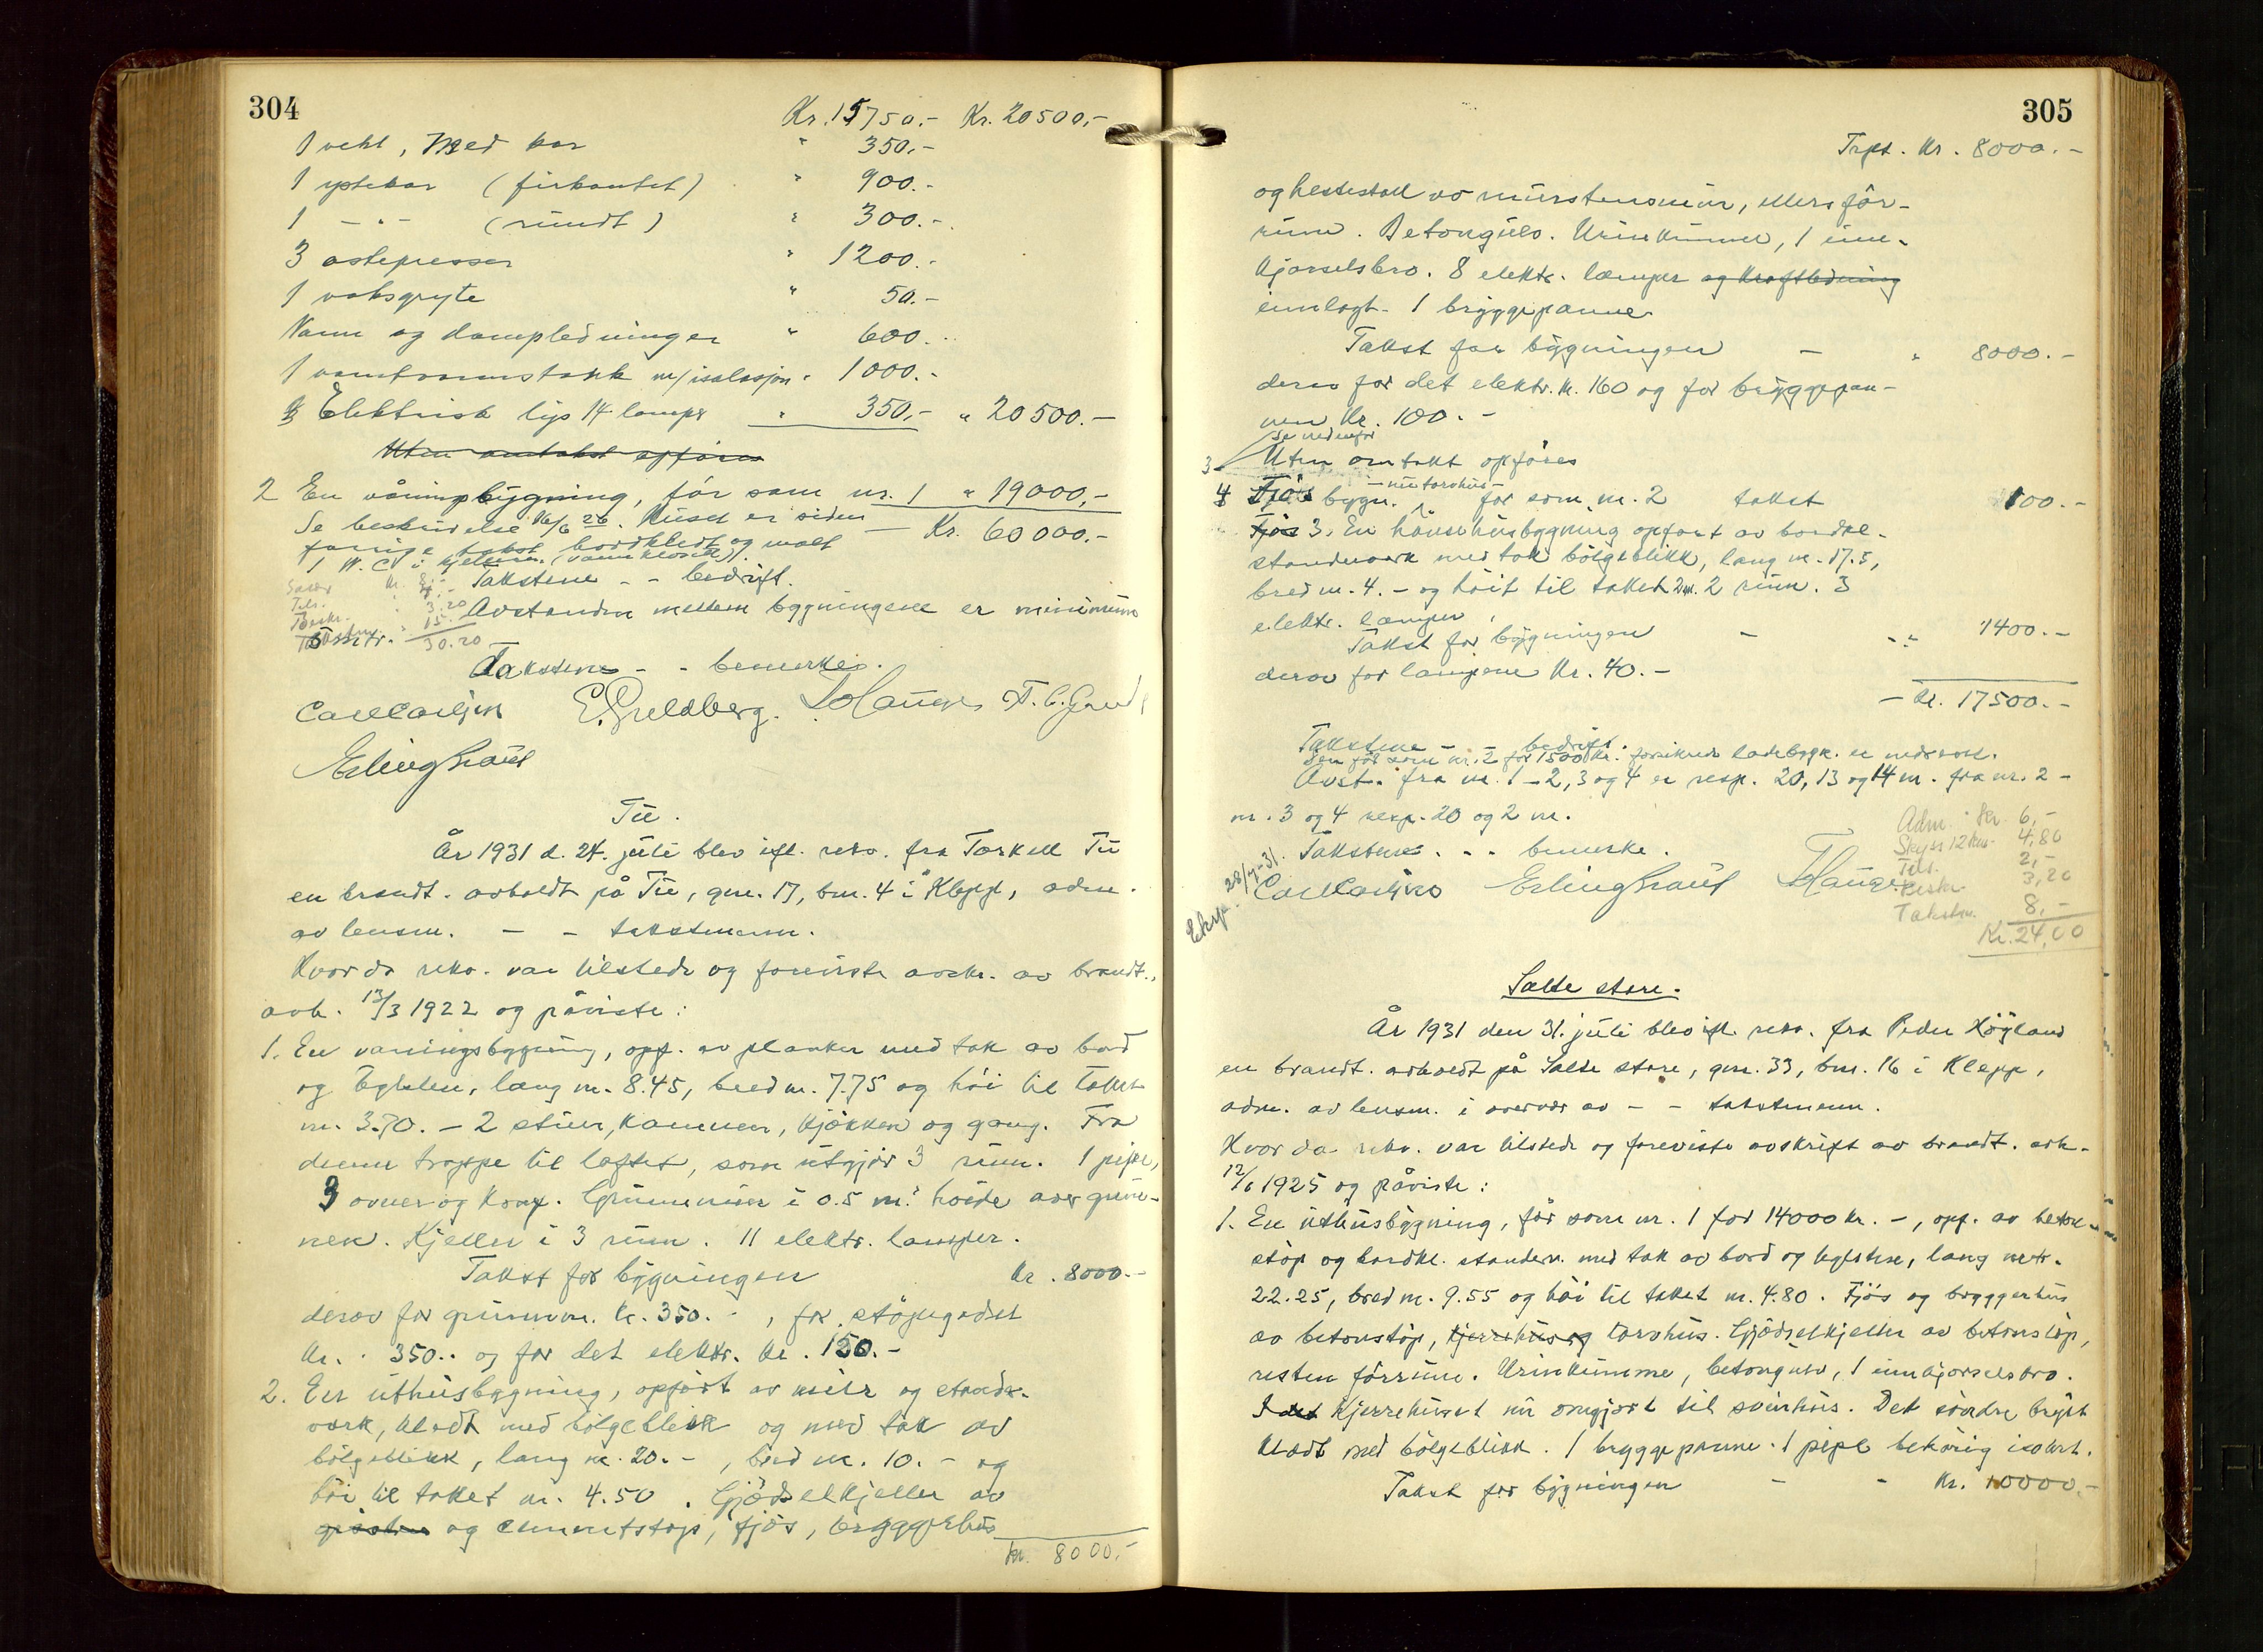 304
Kr. 15750.- Kr. 20500,-
1 vekt, med kar " 350.-
1 ystekar (firkantet) " 900.-
1 -"- (rundt) " 300.-
3 ostepresser " 1200.-
1 voksgryte " 50.-
Vann og dampledninger " 600.-
1 vanntank m/isolasjon " 1000.-
Elektrisk lys 14 lamper " 350,- " 20500.-
Uten omtakst opføres
2 En våningsbygning, før som nr. 1 " 19000,-
Se beskrivelse 16/6 26. Huset er siden
forrige takst bordklædt og malt Kr. 60000.-
1 W.C. i kjelleren (vannklosett).
Takstene - - bedrift.
Avstanden mellem bygningene er minimum
5 mtr.
3.20
15
30.20
Takstene - - bemerkes.
Carl Carlsen E. Guldberg.
Erling Graul
Tu.
År 1931 d. 24. juli blev ifl. rekv. fra Torkell Tu
en brandt. avholdt på Tu, gnr. 17, bnr. 4 i Klepp, adm.
av lensm. - - takstmenn.
Hvor da rekv. var tilstede og foreviste avskr. av brandt.,
avh. 13/3 1922 og påviste:
1. En vaningsbygning, opf. av planker med tak av bord
og teglsten, lang m. 8.45, bred m. 7.75 og høi til taket
m. 3.70. - 2 stuer, kammer, kjøkken og gang. Fra
denne trappe til loftet, som utgjør 3 rum. 1 pipe,
3 ovner og komf. Grunnmur i 0.5 m. høide over grun-
nen. Kjeller i 3 rum. 11 elektr. lamper.
Takst for bygningen Kr. 8000.-
derav for grunnm. kr. 350.-, for støpegodset
kr. 350.- og for det elektr. kr. 150.-
2. En uthusbygning, opført av mur og stander-
værk, klædt med bølgeblikk og med tak av
bølgeblikk, lang m. 20.-, bred m. 10.- og
høi til taket m. 4.50. Gjødselkjeller av
og cementstøp, fjøs, bryggerhus
kr. 8000.-
305
Trpt. Kr. 8000.-
og hestestall av murstensmur, ellers fôr-
rum. Betongulv. Urinkumme, 1 inn-
kjørselsbro. 8 elektr. lamper og kraftledning
innlagt. 1 bryggepanne
Takst for bygningen - " 8000.-
derav for det elektr. kr. 160 og for bryggepan-
nen kr. 100.-
Se nedenfor
3 Uten omtakst opføres
4 Fjøs bygn. -nu torvhus- før som nr. 2 takst 100.-
Fjøs 3. En hønsehusbygning opført av bordkl.
standerværk med tak bølgeblikk, lang m. 17.5,
bred m. 4.- og høit til taket 2 m. 2 rum. 3
elektr. lamper.
Takst for bygningen - " 1400.-
derav for lampene Kr. 40.-
- Kr. 17500.-
Takstene - - bedrift.
Den før som nr. 2 for 1500 kr. forsikrede ladebygn. er nedrevet.
Avst. fra nr. 1-2, 3 og 4 er resp. 20, 13 og 14 m. fra nr. 2-
nr. 3 og 4 resp. 20 og 2 m.
Takstene - - bemerke.
Eksp. 28/7-31.
Carl Carlsen Erling Graul
Adm. Kr. 6,-
Skyss 12 km. 4,80
Till. 2,-
Beskr. 3,20
Takstm. 8,-
Kr. 24,00
Salte store.
År 1931 den 31. juli blev ifl. rekv. fra Peder Høyland
en brandt. avholdt på Salte store, gnr. 33, bnr. 16 i Klepp,
adm. av lensm. i overvær av - - takstmenn.
Hvor da rekv. var tilstede og foreviste avskrift av brandt. avh.
12/6 1925 og påviste:
1. En uthusbygning, før som nr. 1 for 14000 kr. -, opf. av beton
støp og bordkl. standerv. med tak av bord og teglsten, lang mtr.
22.25, bred m. 9.55 og høi til taket m. 4.80. Fjøs og bryggerhus
av betonstøp, kjerrehus og torvhus. Gjødselkjeller av betonstøp,
resten fôrrum. Urinkumme, betongulv, 1 innkjørselsbro.
I det Kjerrehuset nu omgjort til svinhus. Det søndre bryst
klædt med bølgeblikk. 1 bryggepanne. 1 pipe behørig isolert.
Takst for bygningen - - Kr. 10000.-